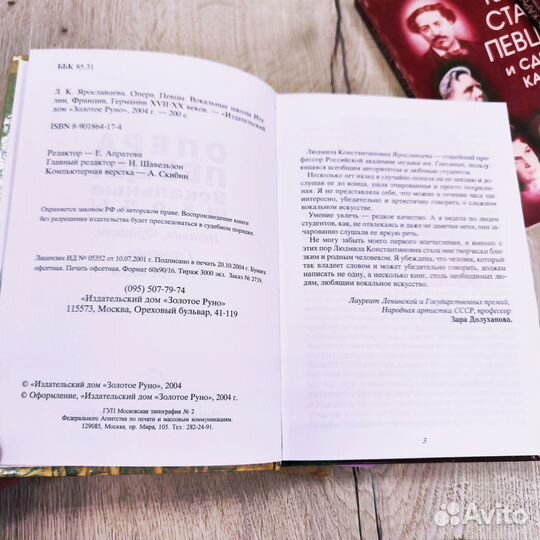 ББК 85.31
Л. К. Ярославцева. Опера. Певцы. Вокальные школы Ита-
лии, Франции, Германии XVII-XX веков. — «Издательский
дом «Золотое Руно», 2004 г. — 200 с.
ISBN 8-901864-17-4
Редактор — Е. Апратова
Главный редактор — Н. Шавельзон
Компьютерная верстка — А. Скибин
Охраняется законом РФ об авторском праве. Воспроизведение книги
без разрешения издательства будет преследоваться в судебном порядке.
Лицензия ИД № 05352 от 10.07.2001 г. Подписано в печать 20.10.2004 г. Бумага
офсетная. Печать офсетная. Формат 60x90/16. Тираж 3000 экз. Заказ № 2739.
(095) 507-79-74
«Издательский дом «Золотое Руно»
115573, Москва, Ореховый бульвар, 41-119
© «Издательский дом «Золотое Руно», 2004
© Оформление, «Издательский дом «Золотое Руно», 2004 г.
ГУП Московская типография № 2
Федерального Агентства по печати и массовым коммуникациям.
129085, Москва, пр. Мира, 105. Тел.: 282-24-91.
Людмила Константиновна Ярославцева — старейший про-
фессор Российской академии музыки им. Гнесиных, пользу-
ющаяся всеобщим авторитетом и любовью студентов.
Несколько лет назад я случайно попала на ее лекцию и до-
слушав ее до конца, ушла очарованная и просто потрясен-
ная. Я не представляла себе, что можно в течение часа так ин-
тересно, убедительно и артистично говорить о сложном
вокальном искусстве.
Умение увлечь — редкое качество. А я видела по лицам
студентов, как, не отвлекаясь и даже не замечая меня, они за-
чарованно слушали ее яркую речь.
Не могу забыть моего первого впечатления, и именно с
этих пор Людмила Константиновна стала мне творчески близ-
ким и родным человеком. Я убеждена, что человек, который
так владеет словом и может убедительно говорить, должен
написать не одну, а несколько книг, столь необходимых лю-
дям, любящим вокальное искусство.
Лауреат Ленинской и Государственных премий,
Народная артистка СССР, профессор
Зара Долуханова.
3
СТА
ПЕВЦ
И СД
КА
Avito